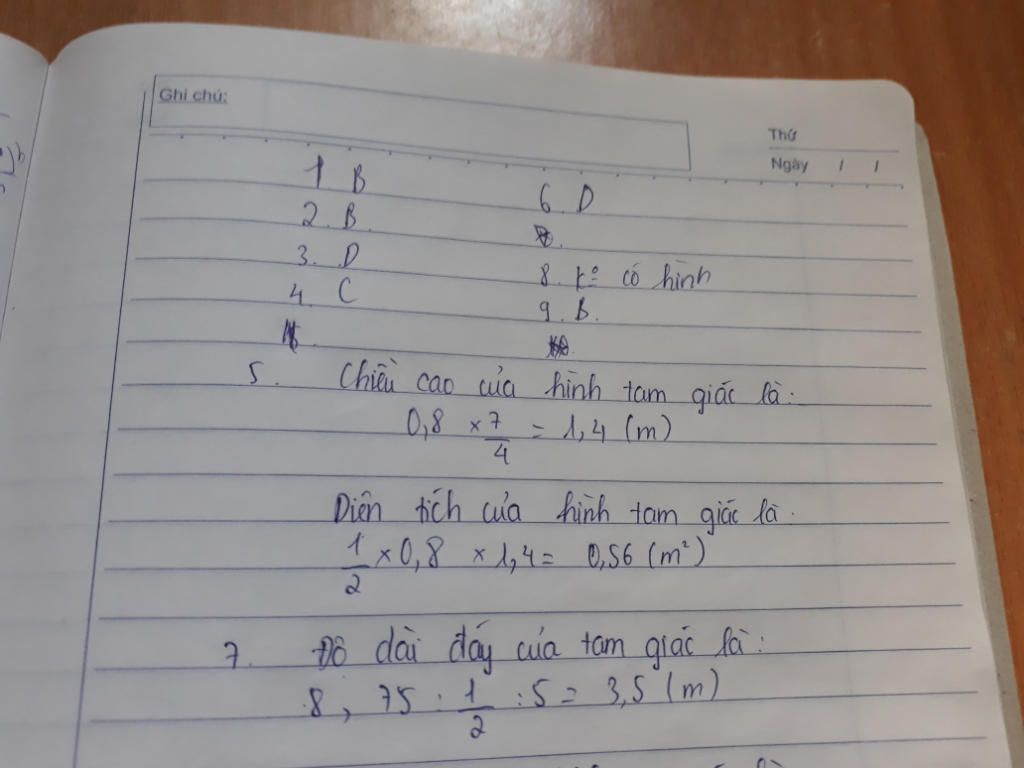 Ghi chú:
Thứ
Ngày / /
1 B
2. B
3. D
4. C
6. D
8. k° có hình
9. B.
5. Chiều cao của hình tam giác là:
0,8 × 7/4 = 1,4 (m)
Diện tích của hình tam giác là.
1/2 × 0,8 × 1,4 = 0,56 (m²)
7. Độ dài đáy của tam giác là:
8,75 : 1/2 : 5 = 3,5 (m)